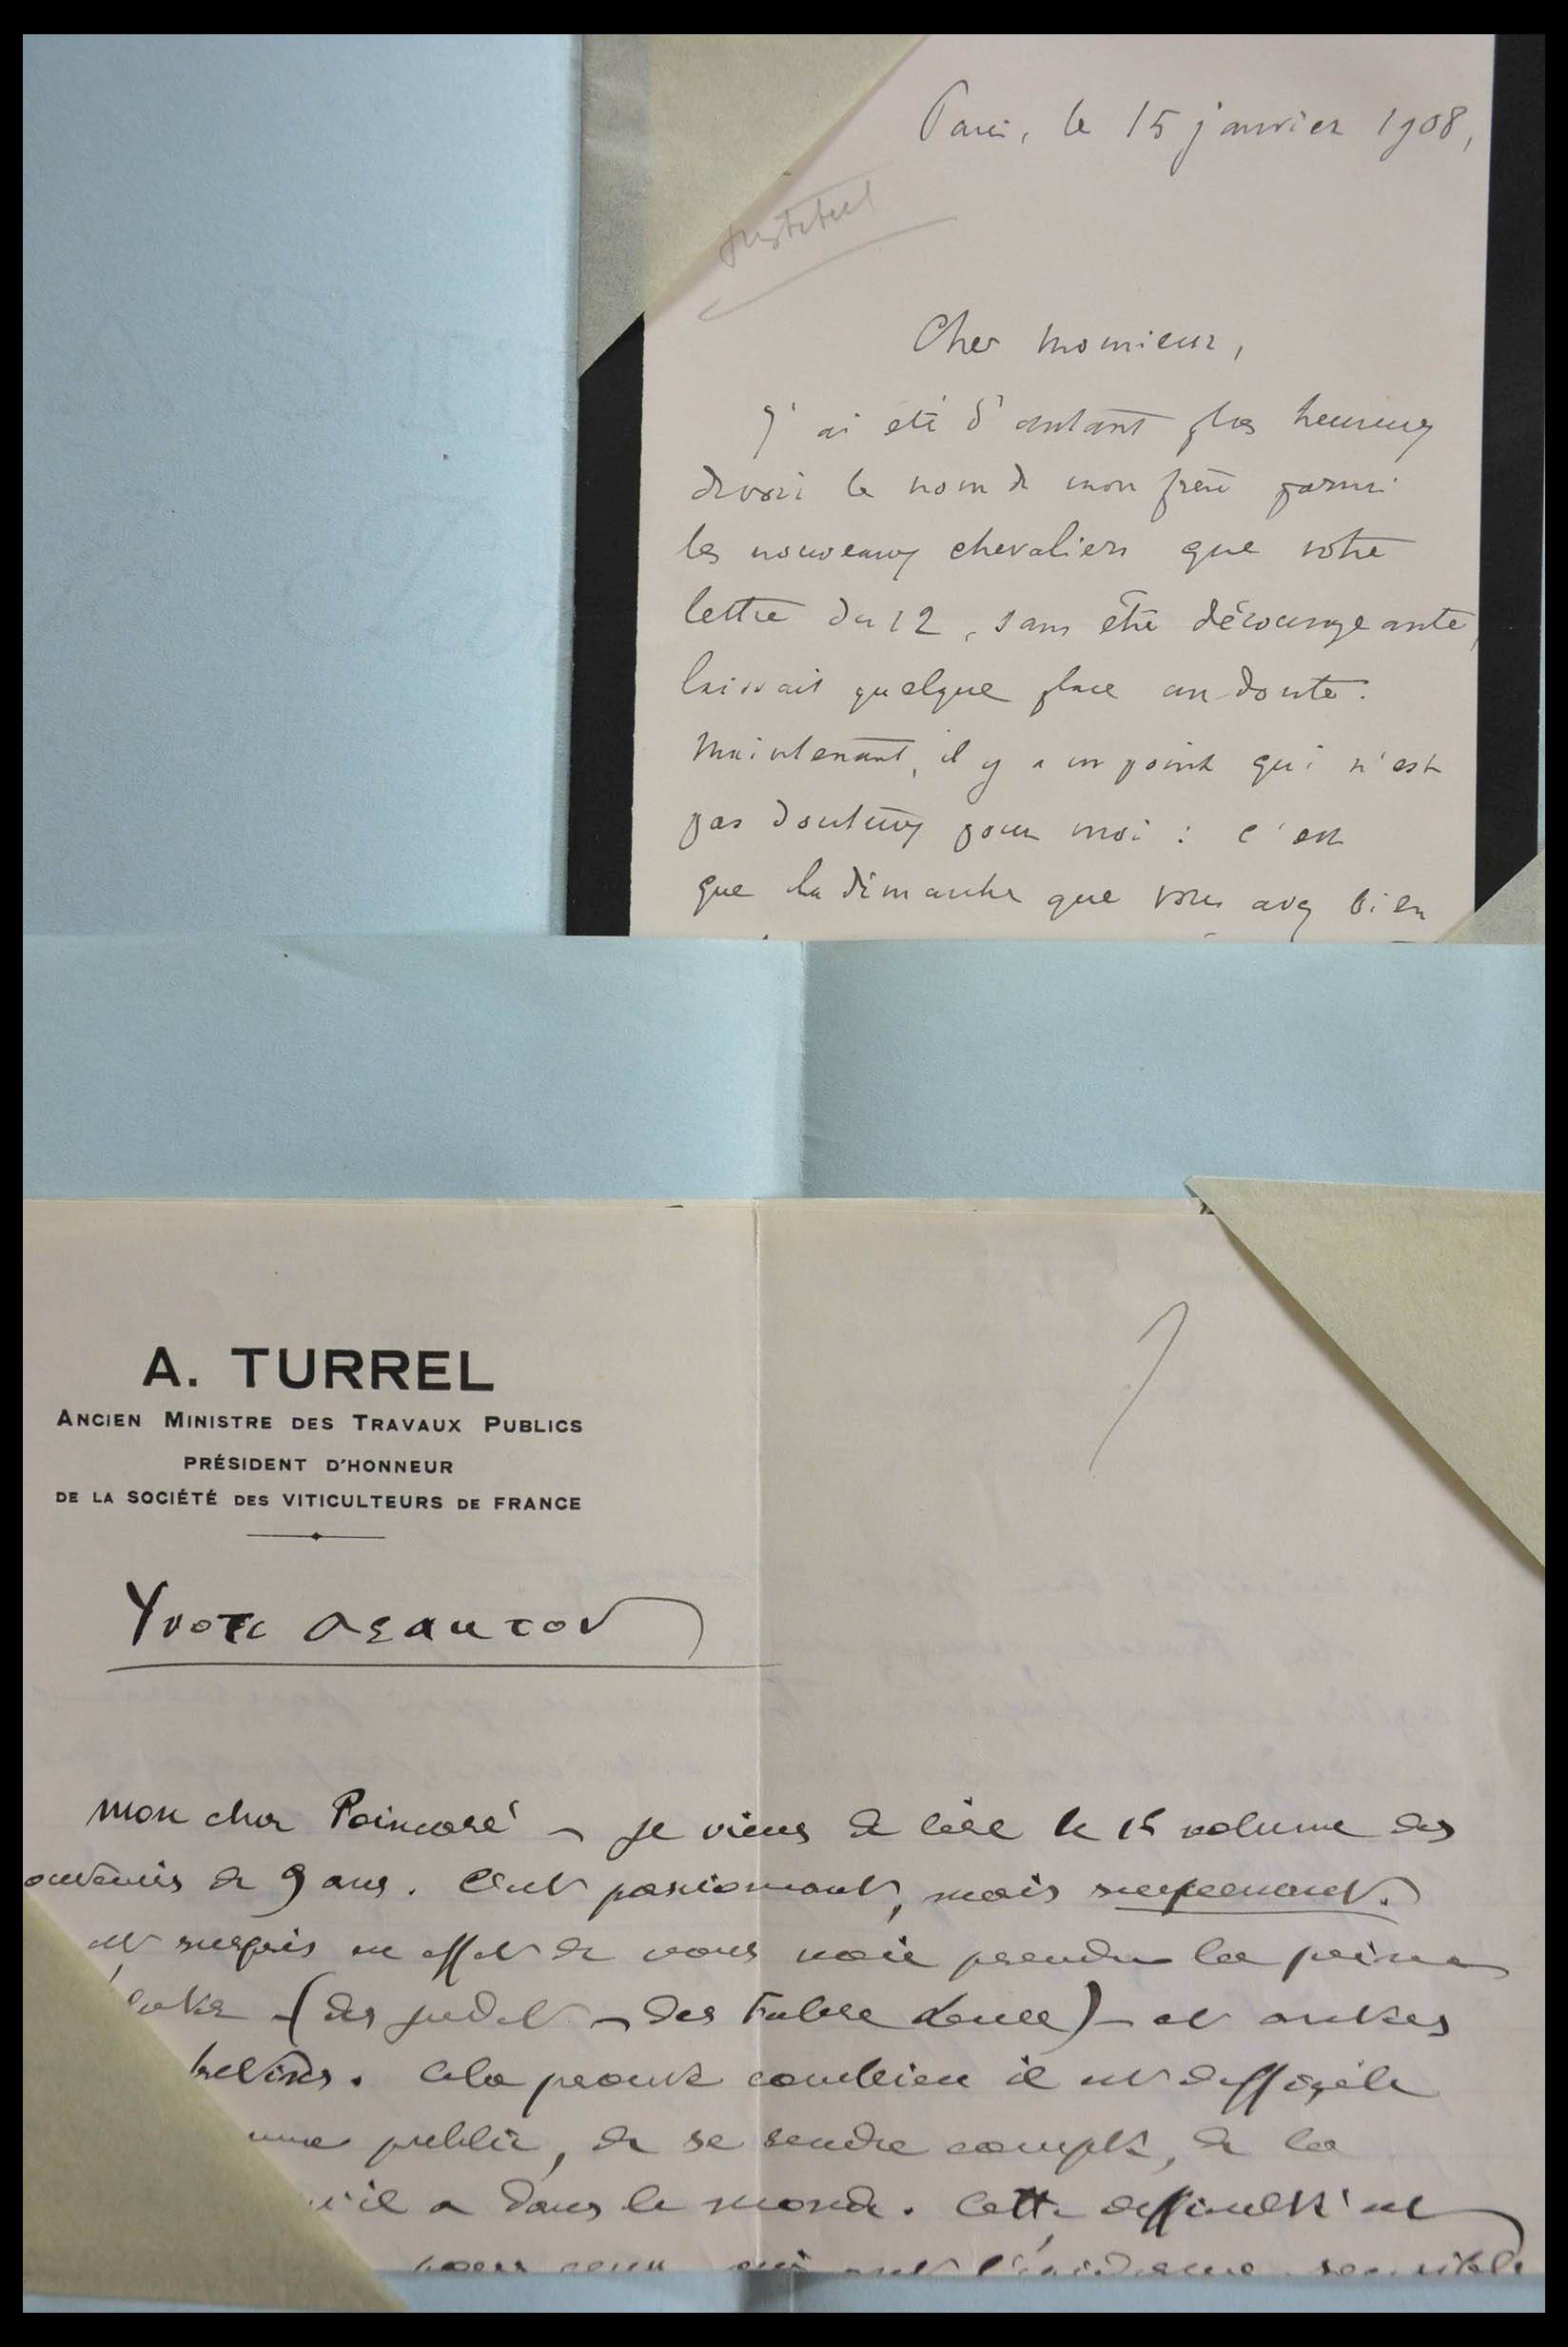 Paris, le 15 janvier 1908,
Institut
Cher monsieur,
J'ai été d'autant plus heureux
de voir le nom de mon frère parmi
les nouveaux chevaliers que votre
lettre du 12, sans être décourageante,
laissait quelque place au doute.
Maintenant, il y a un point qui n'est
pas douteux pour moi : c'est
que la démarche que vous avez bien
A. TURREL
ANCIEN MINISTRE DES TRAVAUX PUBLICS
PRÉSIDENT D'HONNEUR
DE LA SOCIÉTÉ DES VITICULTEURS DE FRANCE
mon cher Poincaré – je viens de lire le volume des
de 9 ans. C'est passionnant, mais surprenant.
est surpris en effet de vous voir prendre la peine
(des Judet – des Fabre Luce) – et autres
. Cela prouve combien il est difficile
public, de se rendre compte, de la
qu'il a dans le monde. Cette difficulté est
pour ceux qui ont l'épiderme sensible